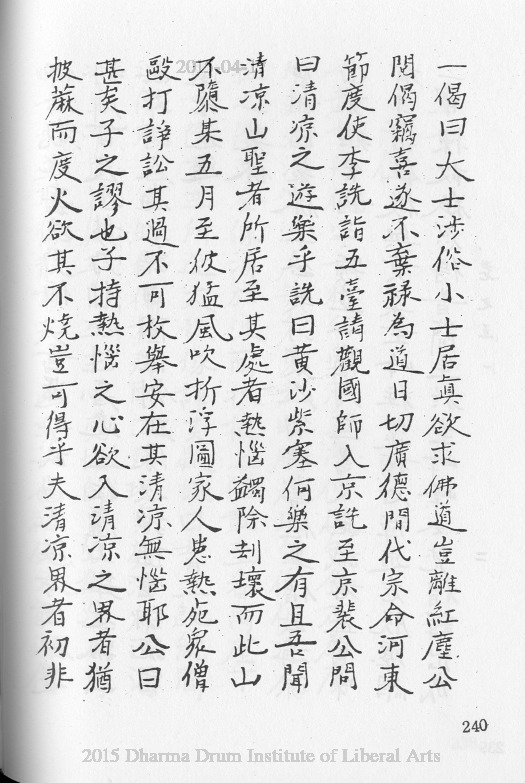 一偈曰大士涉俗小士居真欲求佛道豈離紅塵公
閱偈竊喜遂不棄祿為道日切廣德間代宗命河東
節度使李詵詣五臺請觀國師入京詵至京裴公問
曰清涼之遊樂乎詵曰黃沙紫塞何樂之有且吾聞
清凉山聖者所居至其處者熱惱蠲除刦壞而此山
不隳某五月至彼猛風吹折浮圖家人患熱死衆僧
毆打諍訟其過不可枚舉安在其清凉無惱耶公曰
甚矣子之謬也子持熱惱之心欲入清凉之界者猶
披蔴而度火欲其不燒豈可得乎夫清凉界者初非
240
2015-04-
2015 Dharma Drum Institute of Liberal Arts